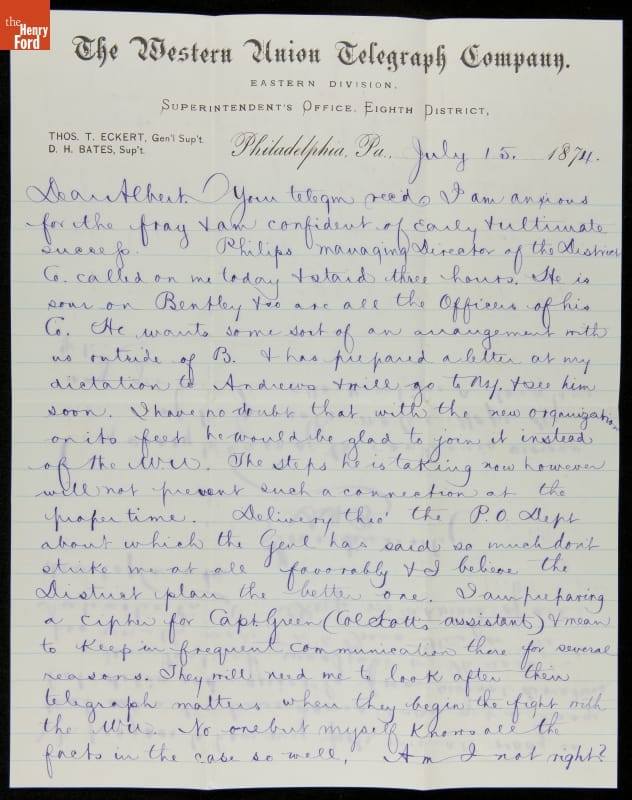 the
Henry
Ford
The Western Union Telegraph Company.
EASTERN DIVISION,
SUPERINTENDENT'S OFFICE, EIGHTH DISTRICT,
THOS. T. ECKERT, Gen'l Sup't.
D. H. BATES, Sup't.
Philadelphia, Pa., July 15. 1874.
Dear Albert. Your telegm recd. I am anxious
for the fray & am confident of early & ultimate
success. Philips managing Director of the District
Co. called on me today & staid three hours. He is
sour on Bentley & so are all the Officers of his
Co. He wants some sort of an arrangement with
us outside of B. & has prepared a letter at my
dictation to Andrews & will go to NY. & see him
soon. I have no doubt that with the new organization
on its feet he would be glad to join it instead
of the WU. The steps he is taking now however
will not prevent such a connection at the
proper time. Delivery thro' the P.O. Dept
about which the Genl has said so much dont
strike me at all favorably & I believe the
District plan the better one. I am preparing
a cipher for Capt Green (Col Scott's assistant) & mean
to keep in frequent communication there for several
reasons. They will need me to look after their
telegraph matters when they begin the fight with
the WU. No one but myself knows all the
facts in the case so well. Am I not right?